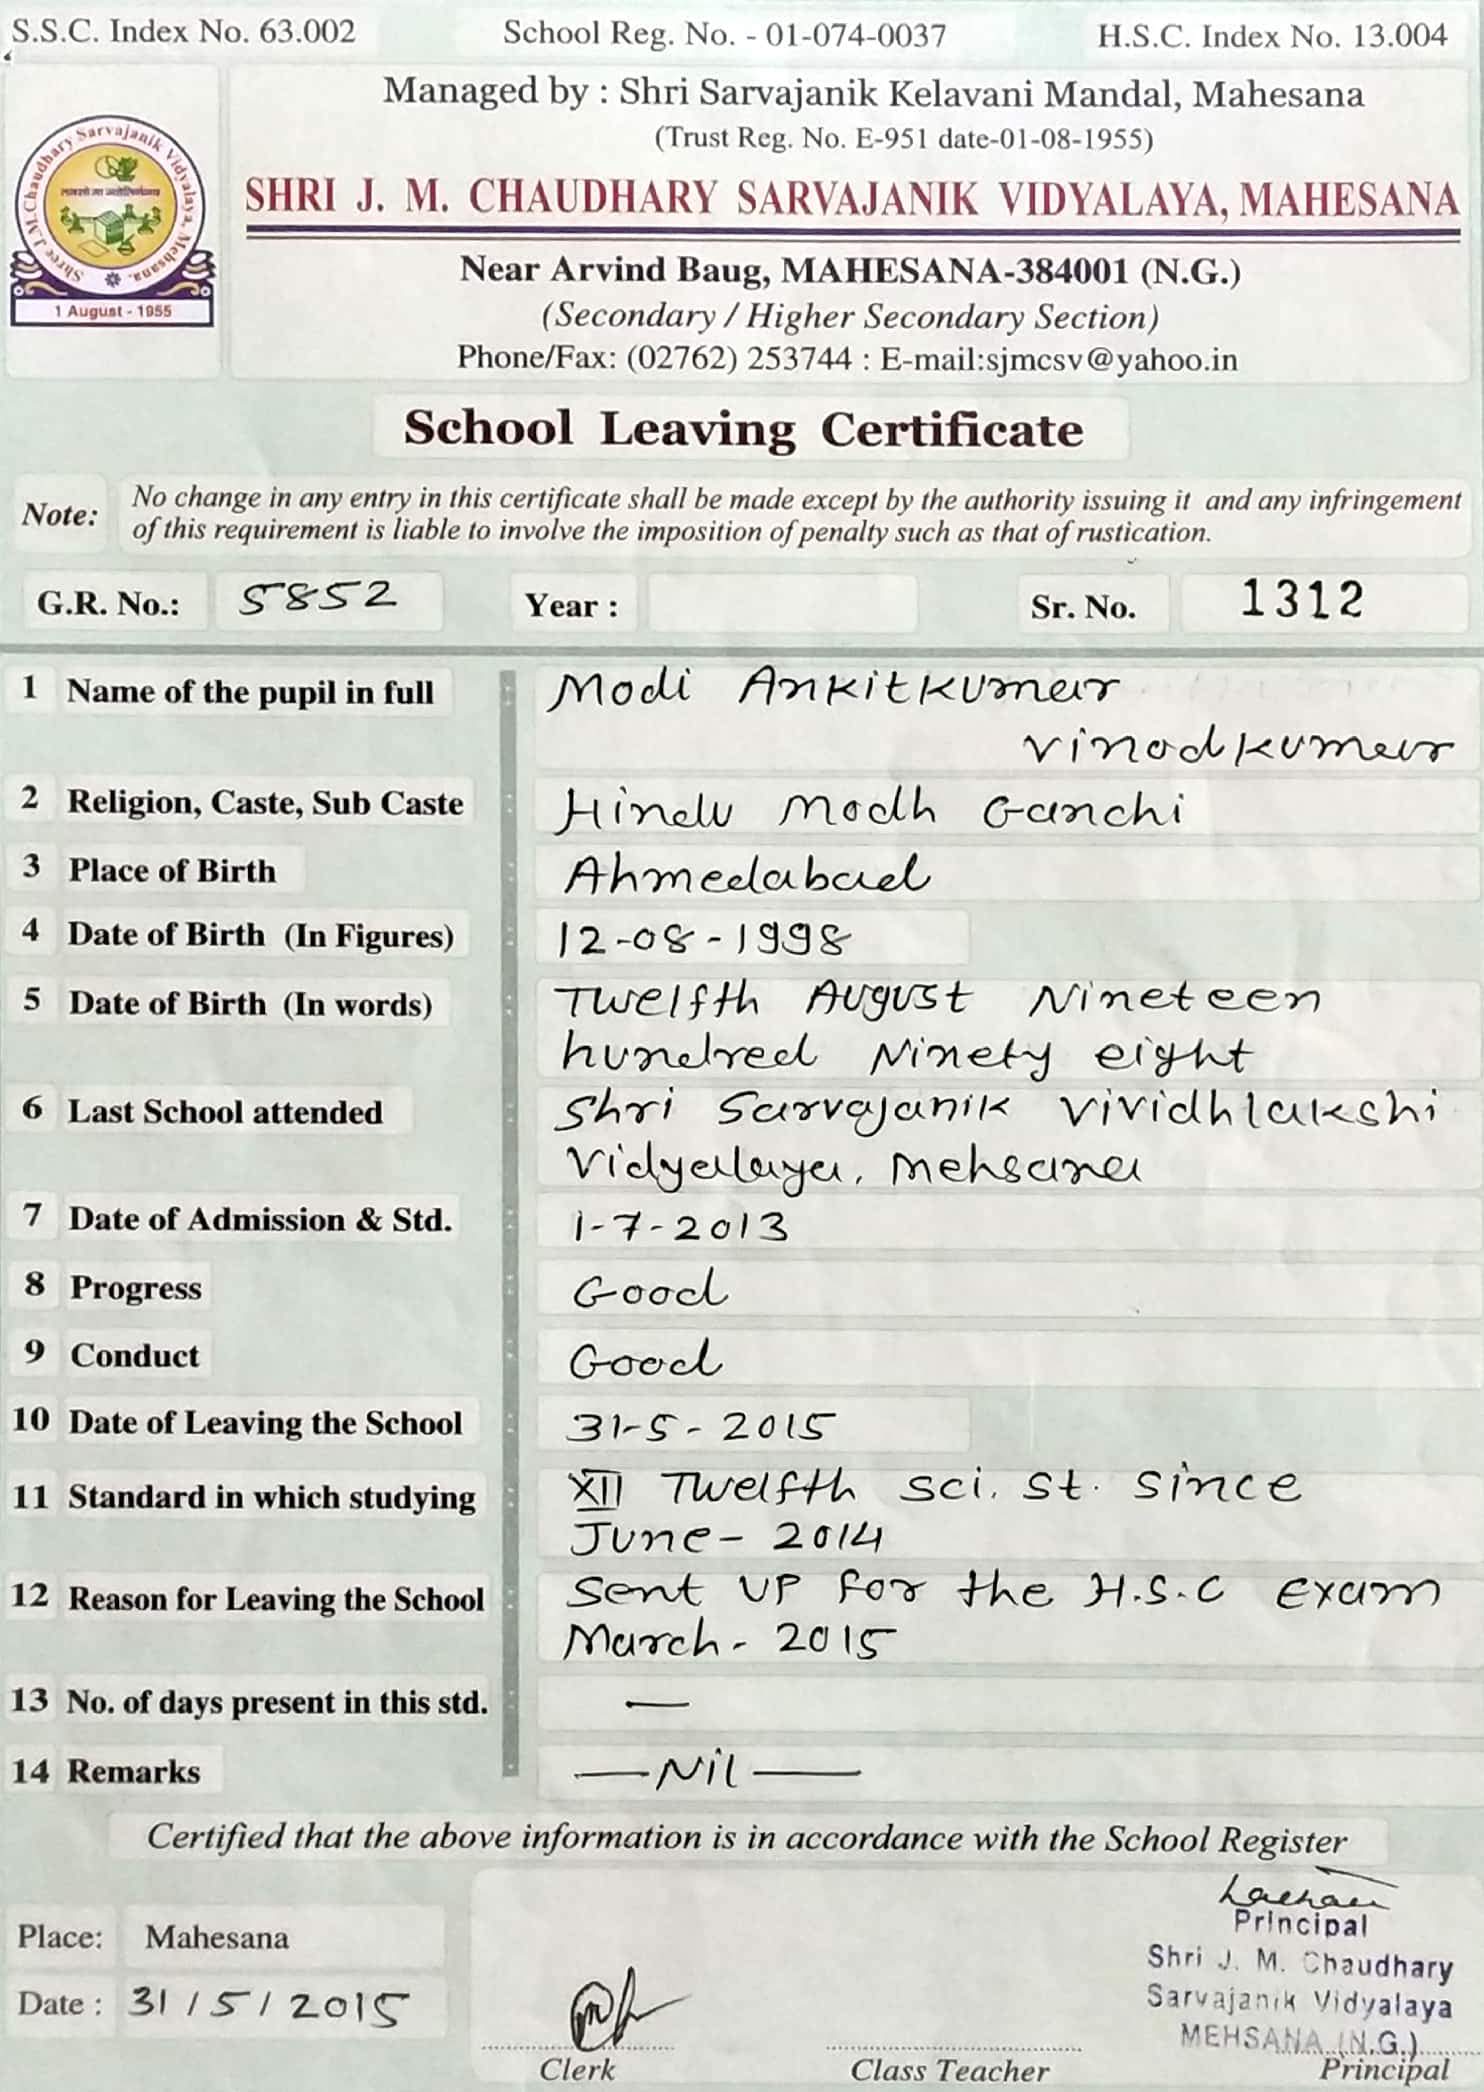 S.S.C. Index No. 63.002 School Reg. No. - 01-074-0037 H.S.C. Index No. 13.004
Managed by : Shri Sarvajanik Kelavani Mandal, Mahesana
(Trust Reg. No. E-951 date-01-08-1955)
Shree J.M.Chaudhary Sarvajanik Vidyalaya, Mehsana.
SHRI J. M. CHAUDHARY SARVAJANIK VIDYALAYA, MAHESANA
Near Arvind Baug, MAHESANA-384001 (N.G.)
1 August - 1955
(Secondary / Higher Secondary Section)
Phone/Fax: (02762) 253744 : E-mail:sjmcsv@yahoo.in
School Leaving Certificate
Note: No change in any entry in this certificate shall be made except by the authority issuing it and any infringement
of this requirement is liable to involve the imposition of penalty such as that of rustication.
G.R. No.: 5852 Year : Sr. No. 1312
1 Name of the pupil in full Modi Ankitkumar
Vinodkumar
2 Religion, Caste, Sub Caste Hindu Modh Ganchi
3 Place of Birth Ahmedabad
4 Date of Birth (In Figures) 12-08-1998
5 Date of Birth (In words) Twelfth August Nineteen
hundred Ninety eight
6 Last School attended Shri Sarvajanik Vividhlakshi
Vidyalaya, Mehsana
7 Date of Admission & Std. 1-7-2013
8 Progress Good
9 Conduct Good
10 Date of Leaving the School 31-5-2015
11 Standard in which studying XII Twelfth Sci. St. Since
June - 2014
12 Reason for Leaving the School Sent up for the H.S.C Exam
March - 2015
13 No. of days present in this std. —
14 Remarks — Nil —
Certified that the above information is in accordance with the School Register
Place: Mahesana
Date : 31/5/2015
Principal
Shri J. M. Chaudhary
Sarvajanik Vidyalaya
MEHSANA (N.G.)
Clerk Class Teacher Principal